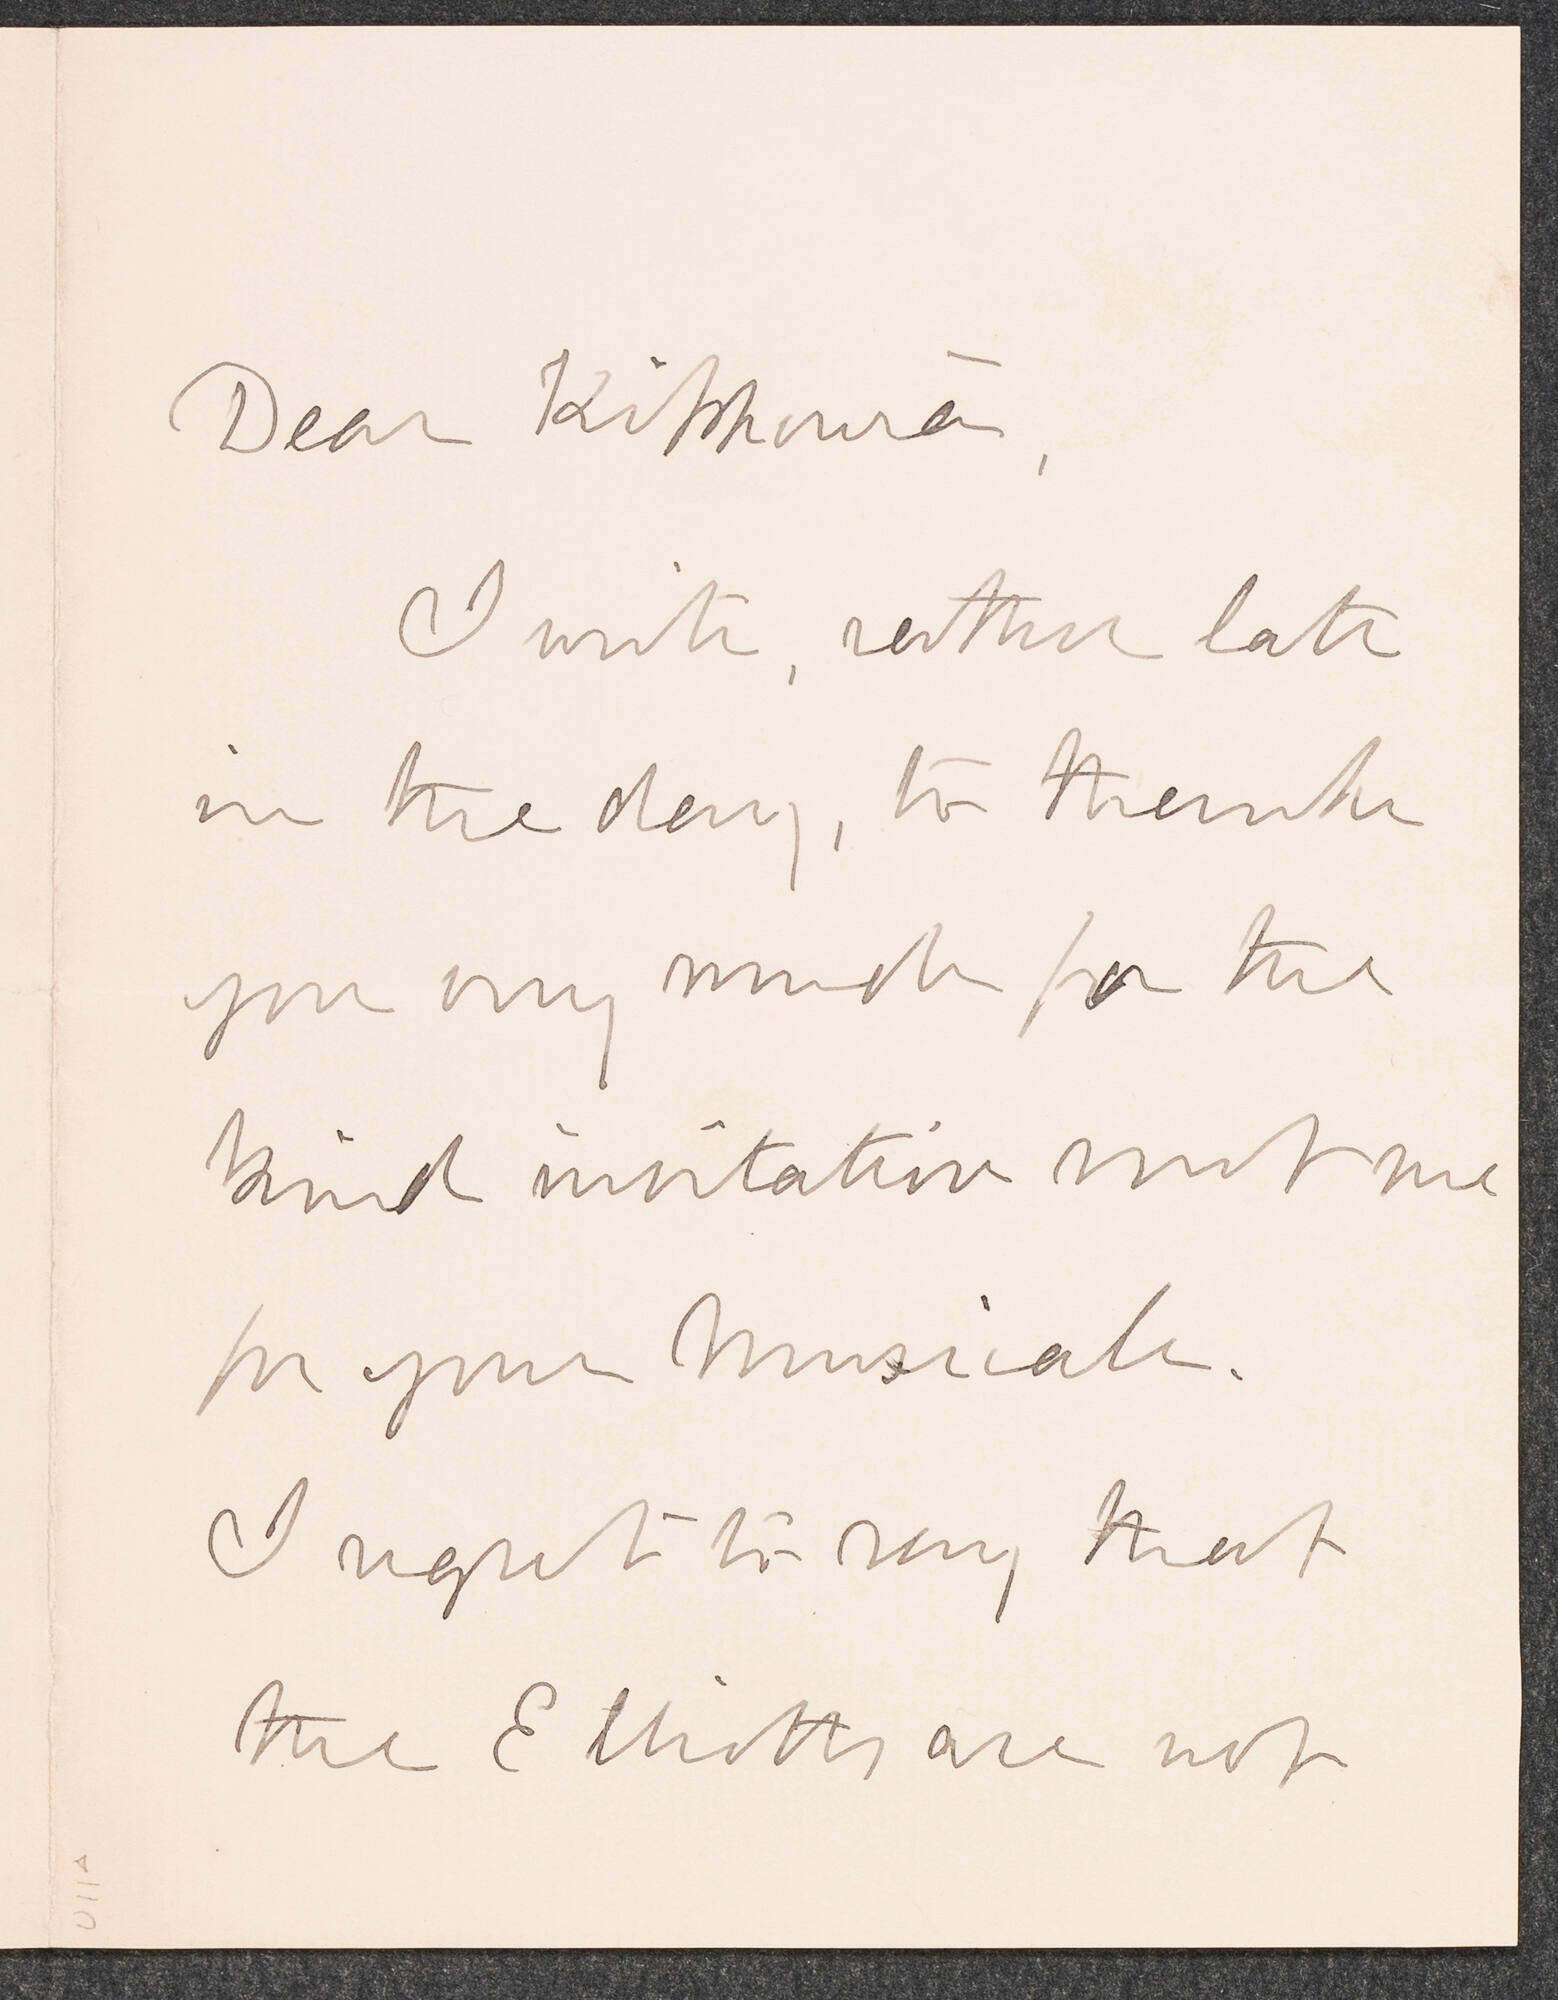 Dear Kitthourā,
I write, rather late
in the day, to thank
you very much for the
kind invitation sent me
for your Musicale.
I regret to say that
the Elliotts are not